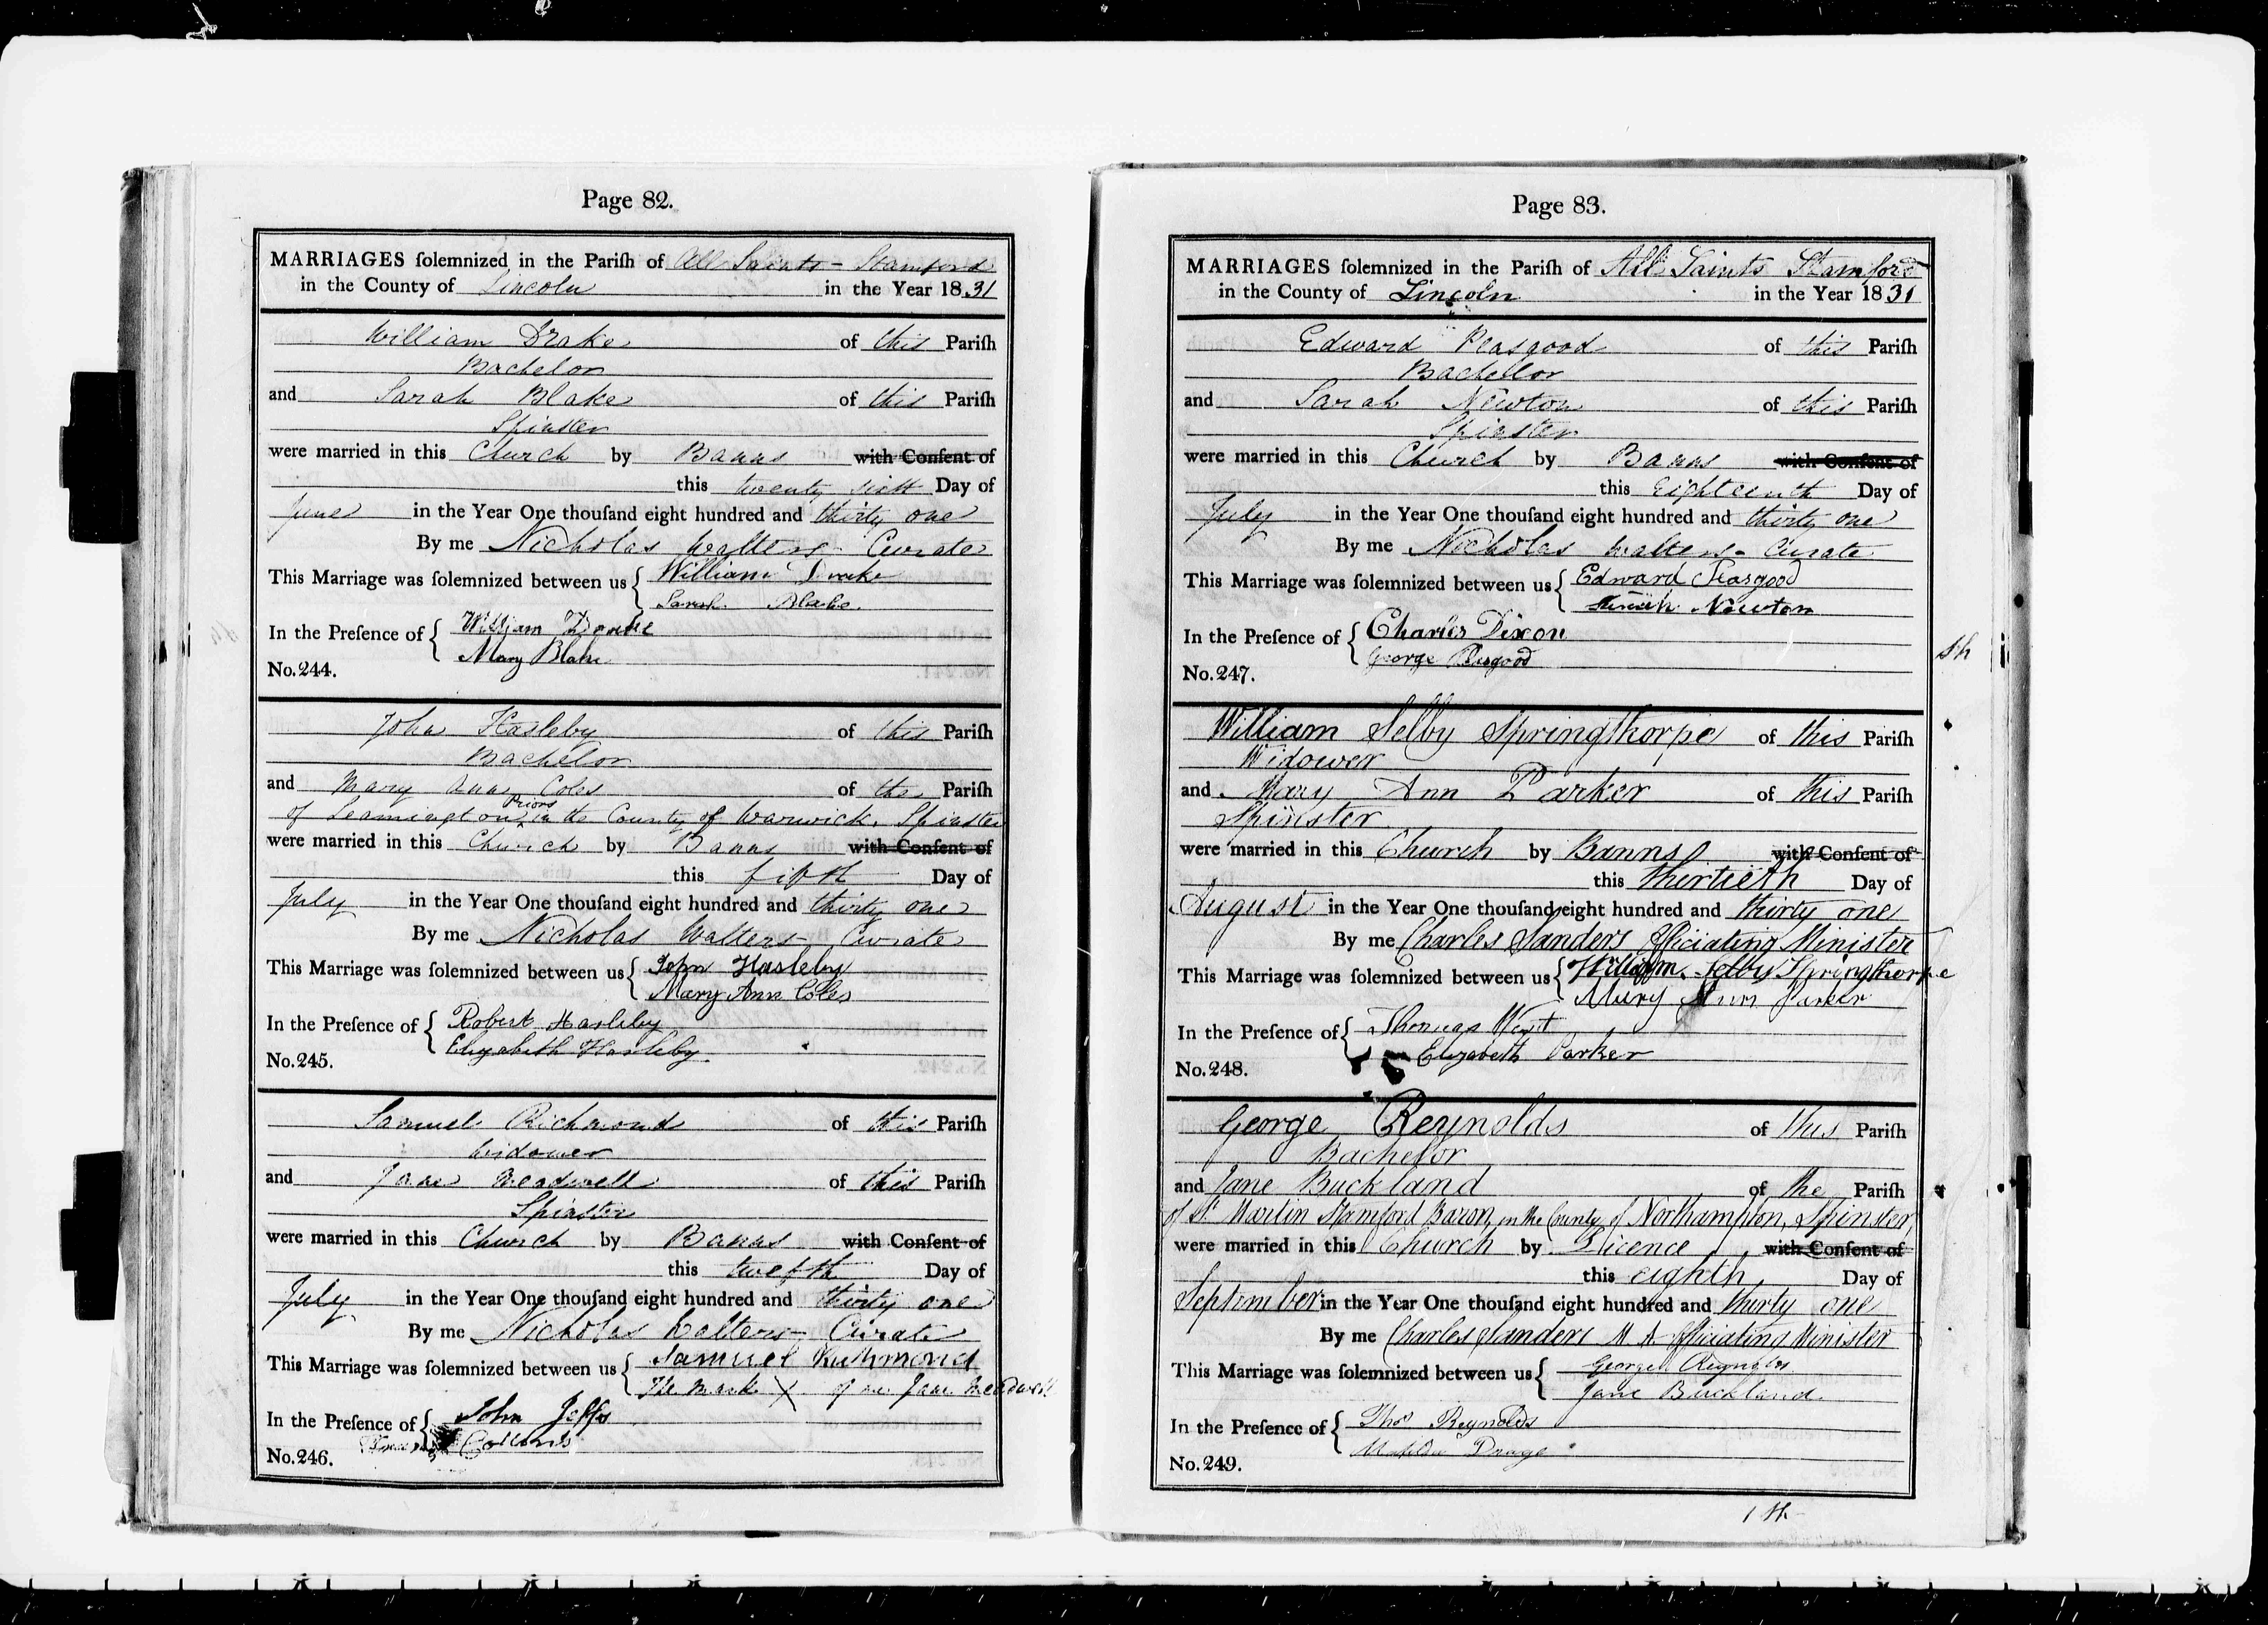 Page 82.
MARRIAGES ſolemnized in the Pariſh of All Saints - Stamford
in the County of Lincoln in the Year 1831
William Drake of this Pariſh
Bachelor
and Sarah Blake of this Pariſh
Spinster
were married in this Church by Banns with Conſent of
this twenty sixth Day of
June in the Year One thouſand eight hundred and thirty one
By me Nicholas Walters Curate
This Marriage was ſolemnized between us { William Drake
Sarah Blake
In the Preſence of { William Drake
Mary Blake
No. 244.
John Hasleby of this Pariſh
Bachelor
and Mary Ann Coles of the Pariſh
of Leamington Priors in the County of Warwick. Spinster
were married in this Church by Banns with Conſent of
this fifth Day of
July in the Year One thouſand eight hundred and thirty one
By me Nicholas Walters Curate
This Marriage was ſolemnized between us { John Hasleby
Mary Ann Coles
In the Preſence of { Robert Hasleby
Elizabeth Hasleby
No. 245.
Samuel Richmond of this Pariſh
Widower
and Jane Meadwell of this Pariſh
Spinster
were married in this Church by Banns with Conſent of
this twelfth Day of
July in the Year One thouſand eight hundred and thirty one
By me Nicholas Walters Curate
This Marriage was ſolemnized between us { Samuel Richmond
The Mark X of me Jane Meadwell
In the Preſence of { John Jeffs
Collins
No. 246.
Page 83.
MARRIAGES ſolemnized in the Pariſh of All Saints Stamford
in the County of Lincoln in the Year 1831
Edward Peasgood of this Pariſh
Bachellor
and Sarah Newton of this Pariſh
Spinster
were married in this Church by Banns with Conſent of
this Eighteenth Day of
July in the Year One thouſand eight hundred and thirty one
By me Nicholas Walters - Curate
This Marriage was ſolemnized between us { Edward Peasgood
Sarah Newton
In the Preſence of { Charles Dixon
George Peasgood
No. 247.
William Selby Springthorpe of this Pariſh
Widower
and Mary Ann Parker of this Pariſh
Spinster
were married in this Church by Banns with Conſent of
this thirtieth Day of
August in the Year One thouſand eight hundred and thirty one
By me Charles Sanders Officiating Minister
This Marriage was ſolemnized between us { William Selby Springthorpe
Mary Ann Parker
In the Preſence of { Thomas West
Elizabeth Parker
No. 248.
George Reynolds of this Pariſh
Bachelor
and Jane Buckland of the Pariſh
of St. Martin Stamford Baron, in the County of Northampton, Spinster,
were married in this Church by Licence with Conſent of
this eighth Day of
September in the Year One thouſand eight hundred and thirty one
By me Charles Sanders M.A. Officiating Minister
This Marriage was ſolemnized between us { George Reynolds
Jane Buckland.
In the Preſence of { Thos Reynolds
Matilda Drage
No. 249.